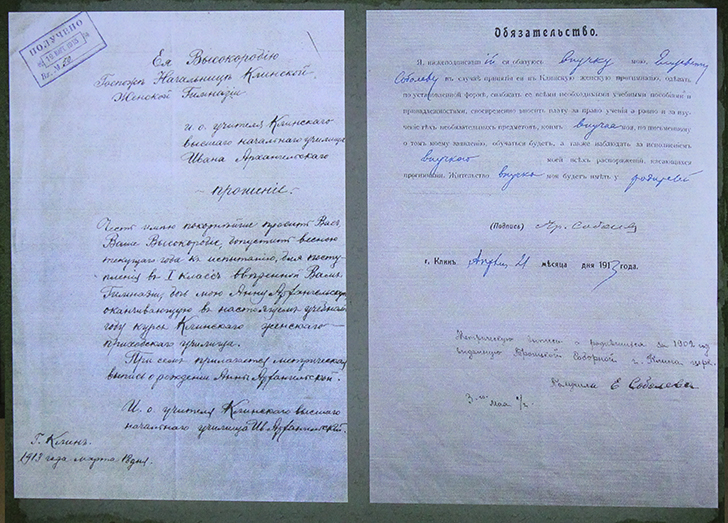 ПОЛУЧЕНО
Ея Высокородію
Госпожѣ Начальницѣ Клинской
Женской Гимназіи
и. о. учителя Клинскаго
высшаго начальнаго училища
Ивана Архангельскаго
прошеніе.
Честь имѣю покорнѣйше просить Васъ,
Ваше Высокородіе, допустить весною
текущаго года къ испытанію, для посту-
пленія въ I классъ ввѣренной Вамъ
Гимназіи, дочь мою Анну Архангельскую
оканчивающую въ настоящемъ учебномъ
году курсъ Клинскаго женскаго
приходскаго училища.
При семъ прилагается метрическая
выпись о рожденіи Анны Архангельской.
И. о. учителя Клинскаго высшаго
начальнаго училища Ив Архангельскій.
Г. Клинъ.
1913 года марта 18 дня.
Обязательство.
Я, нижеподписавшійся обязуюсь внучку мою, Елизавету
Соболеву въ случаѣ принятія ея въ Клинскую женскую прогимназію, одѣвать
по установленной формѣ, снабжать ее всѣми необходимыми учебными пособіями и
принадлежностями, своевременно вносить плату за право ученія а равно и за изу-
ченіе тѣхъ необязательныхъ предметовъ, коимъ внучка моя, по письменному
о томъ моему заявленію, обучаться будетъ, а также наблюдать за исполненіемъ
внучкою моей всѣхъ распоряженій, касающихся
прогимназіи. Жительство внучка моя будетъ имѣть у родителей
(Подпись) Соболев
г. Клинъ Апрѣля 21 мѣсяца дня 1913 года.
Метрическую выпись о родившихся за 1902 год
выданную Троицкой Соборной г. Клина церк.
Получила Е Соболева
3 мая